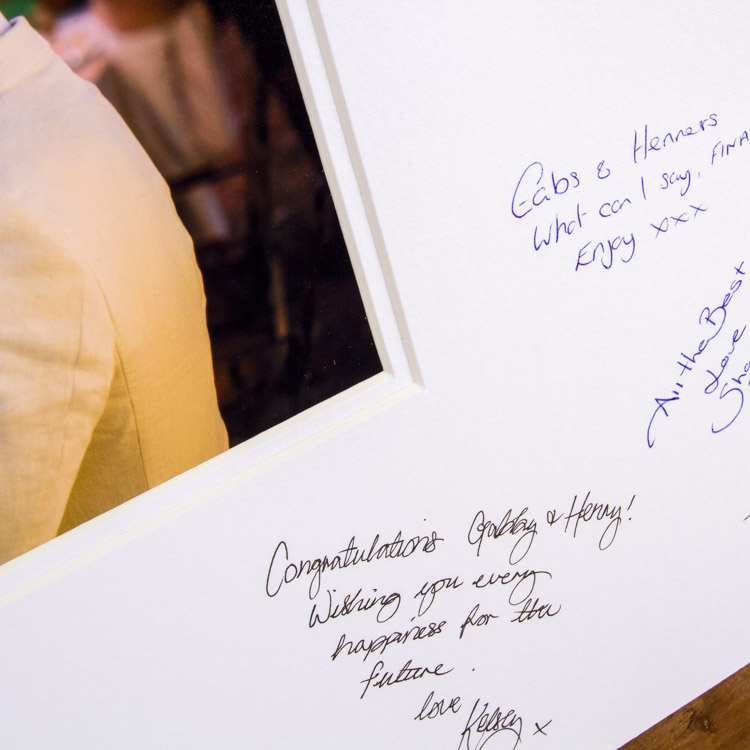 Gabs & Henners
What can I say, FINA
Enjoy xxx
All the Best
Love
Sha
Congratulations Gabby & Henry!
Wishing you every
happiness for the
future.
love Kelsey x